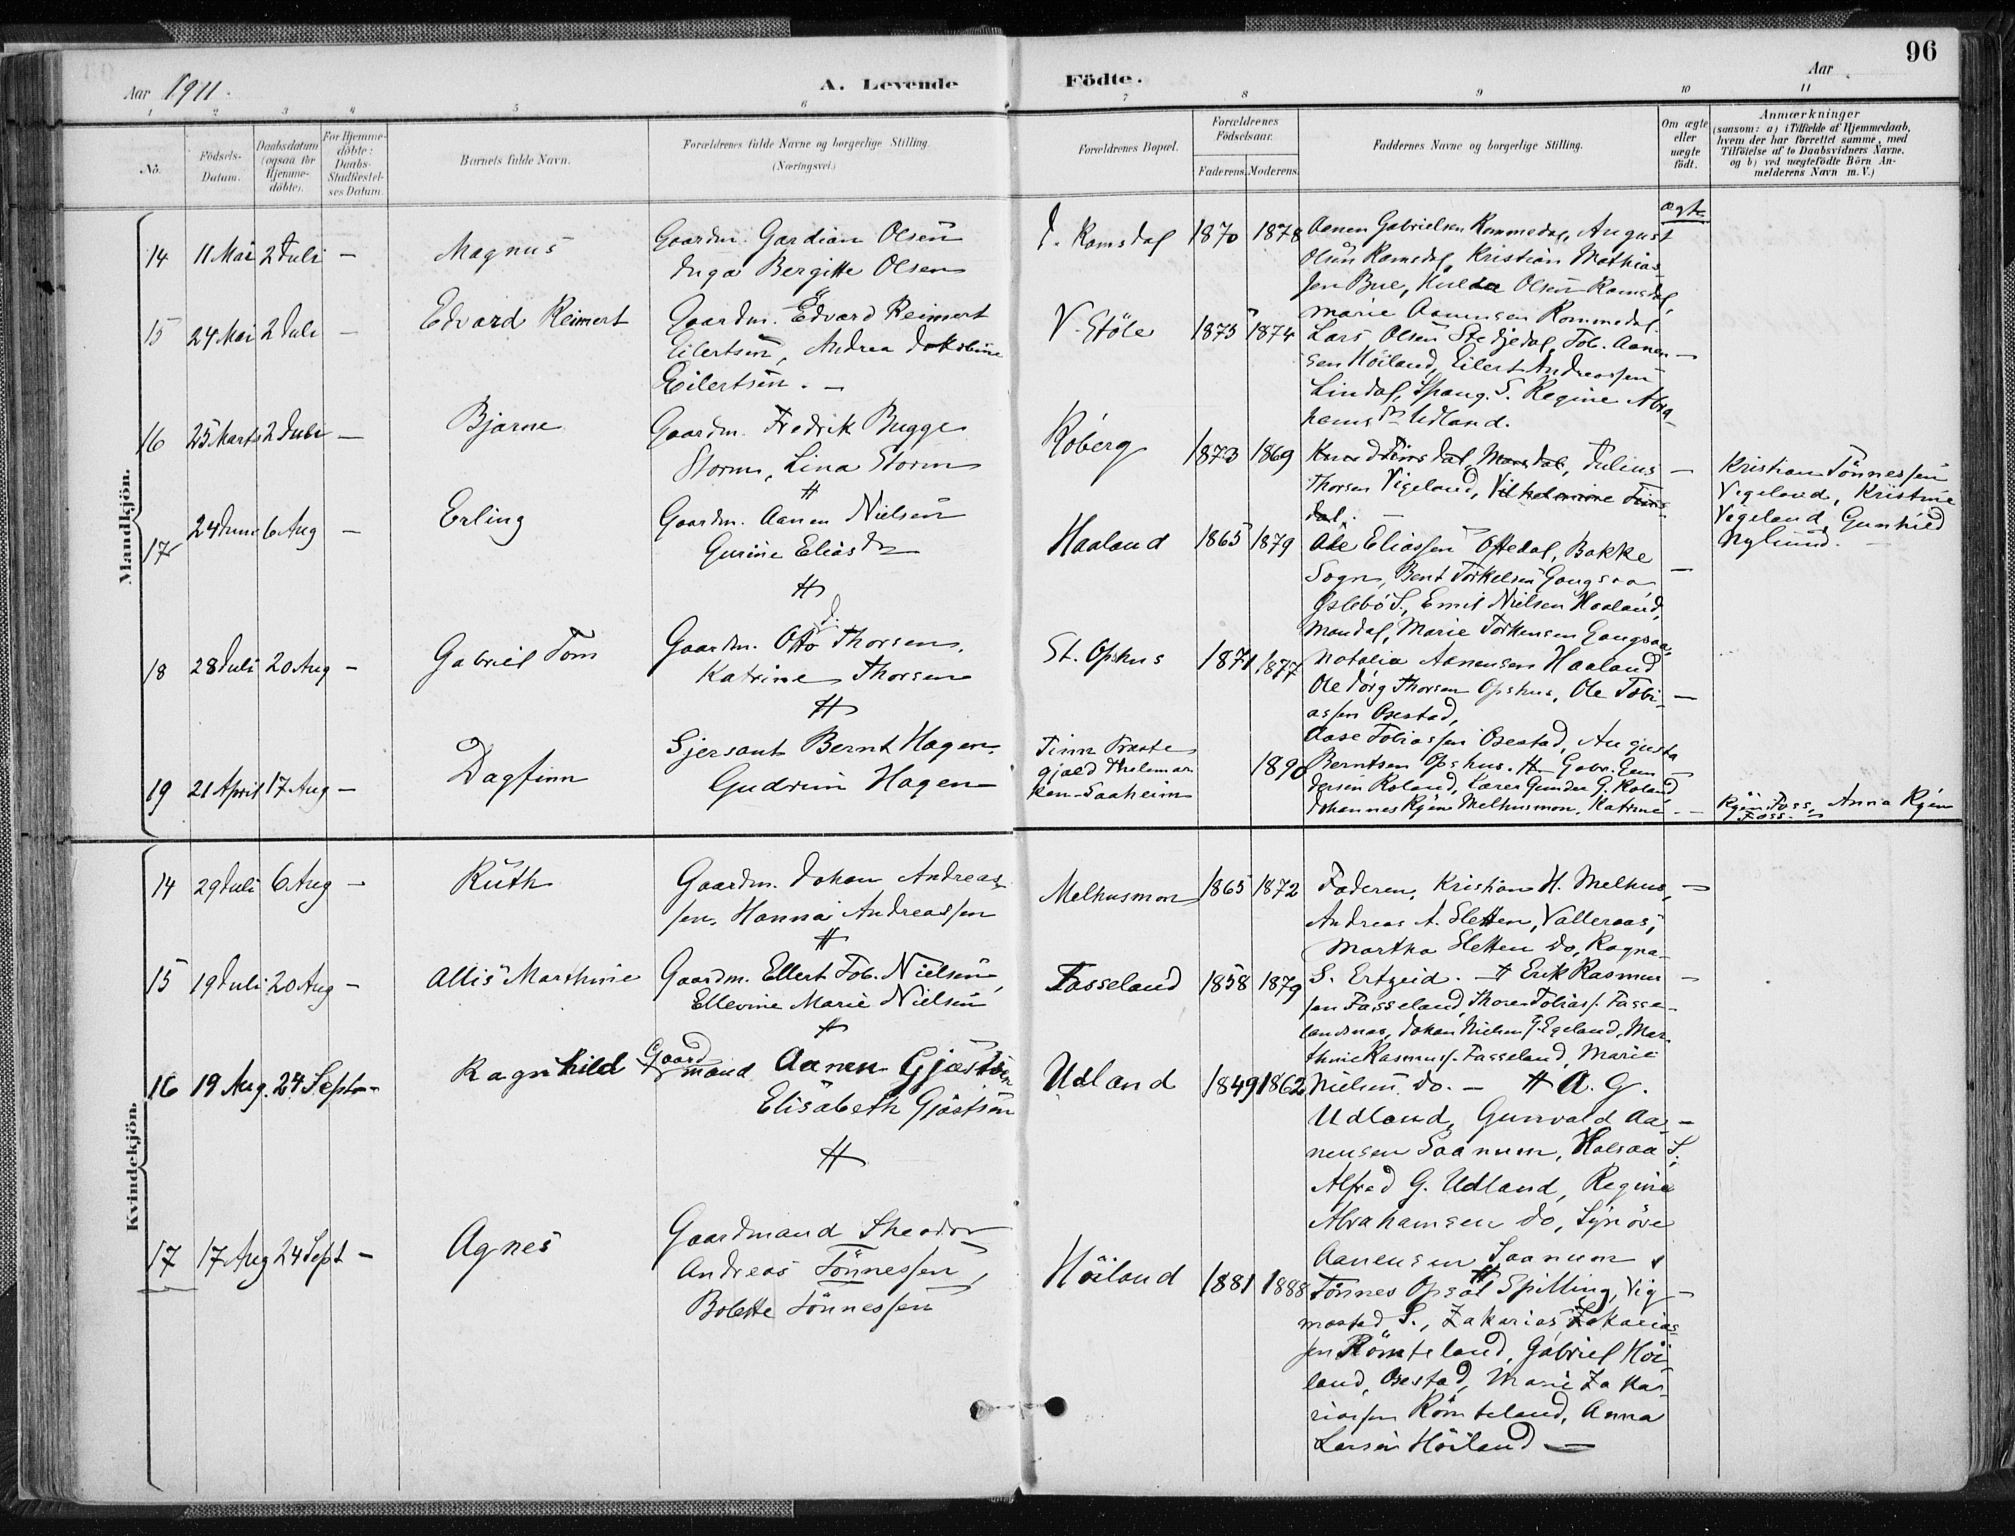 96
Aar 1911.
A. Levende Födte.
Aar
1 2 3 4 5 6 7 8 9 10 11
No.
Födsels-Datum.
Daabsdatum (ogsaa for Hjemme-döbte).
For Hjemme-döbte: Daabs-Stadfæstel-ses Datum.
Barnets fulde Navn.
Forældrenes fulde Navne og borgerlige Stilling.
(Næringsvei.)
Forældrenes Bopæl.
Forældrenes Födselsaar.
Faderens. Moderens.
Faddernes Navne og borgerlige Stilling.
Om ægte eller uægte födt.
Anmærkninger
(saasom: a) i Tilfælde af Hjemmedaab,
hvem der har forrettet samme, med
Tilföielse af to Daabsvidners Navne,
og b) ved uægtefödte Börn An-
melderens Navn m. V.)
Mandkjön.
14 11 Mai 2 Juli – Magnus
Gaardm. Gardian Olsen
Inga Bergitte Olsen
Y. Ramsdal 1870 1878
Aanen Gabrielsen Rommedal, August
Olsen Ramsdal, Kristian Mathias-
sen Bue, Hulda Olsen Ramsdal,
Marie Aanensen Rommedal.
ægte
15 24 Mai 2 Juli – Edvard Reimert
Gaardm. Edvard Reimert
Eilertsen, Andrea Jakobine
Eilertsen. –
V. Stöle 1875 1874
Lars Olsen Stedjedal, Tob. Aanen-
sen Höiland, Eilert Andreassen
Lindal, Spang. S. Regine Abra-
hams dr Udland.
–
16 25 Marts 2 Juli – Bjarne
Gaardm. Fredrik Bugge
Storm, Lina Storm
Röberg 1873 1869
Julius
Thorsen Vigeland,
–
Kristian Tönnessen
Vigeland, Kristine
Vigeland, Gunhild
Nylund. –
17 24 Juni 6 Aug – Erling
Gaardm. Aanen Nielsen
Gurine Elias dr
Haaland 1865 1879
Ole Eliassen Oftedal, Bakke
Sogn, Bent Torkelsen Gangsaa
Öslebö S., Emil Nielsen Haaland,
Mandal, Marie Torkensen Gangsaa,
Natalia Aanensen Haaland
–
18 28 Juli 20 Aug – Gabriel Tom
Gaardm. Otto J. Thorsen,
Katrine Thorsen
St. Opshus 1871 1877
Ole Jörg Thorsen Opshus, Ole Tobi-
assen Osestad,
Aase Tobiassen Osestad, Augusta
Berntsen Opshus.
–
19 21 April 17 Aug – Dagfinn
Sjersant Bernt Hagen.
Gudrun Hagen
Tinn Præste
gjæld Thelemar
ken – Saaheim
1890
Gabr. Gun-
dersen Roland, Karen Gunder G. Roland
Johannes Ryen Melhusmon, Katrine
–
Ryen Foss, Anna Ryen
Foss. –
Kvindekjön.
14 29 Juli 6 Aug – Ruth
Gaardm. Johan Andreas-
sen, Hanna Andreassen
Melhusmon 1865 1872
Faderen, Kristian H. Melhus,
Andreas A. Sletten, Valleraas,
Martha Sletten do, Ragna
S. Ertzeid.
–
15 19 Juli 20 Aug – Allis Marthine
Gaardm. Ellert Tob. Nielsen,
Ellevine Marie Nielsen
Fasseland 1858 1879
Erik Rasmus-
sen Fasseland, Thore Tobias s. Fasse-
landsmoa, Johan Nielsen G. Egeland, Mar-
thine Rasmus s. Fasseland, Marie
Nielsen do. –
–
16 19 Aug. 24 Septr – Ragnhild
Gaardmand Aanen Gjæstsen
Elisabeth Gjæstsen
Udland 1849 1862
A. G.
Udland, Gunvald Aa-
nensen Saanum, Halsaa S.,
Alfred G. Udland, Regine
Abrahamsen do, Synöve
Aanensen Saanum
–
17 17 Aug 24 Sept – Agnes
Gaardmand Theodor
Andreas Tönnessen,
Bolette Tönnessen
Höiland 1881 1888
Tönnes Opsal Spilling, Vig-
mostad S., Zakarias Zakarias-
sen Römteland, Gabriel Höi-
land, Osestad, Marie Zaka-
riassen Römteland, Anna
Larsen Höiland –
–